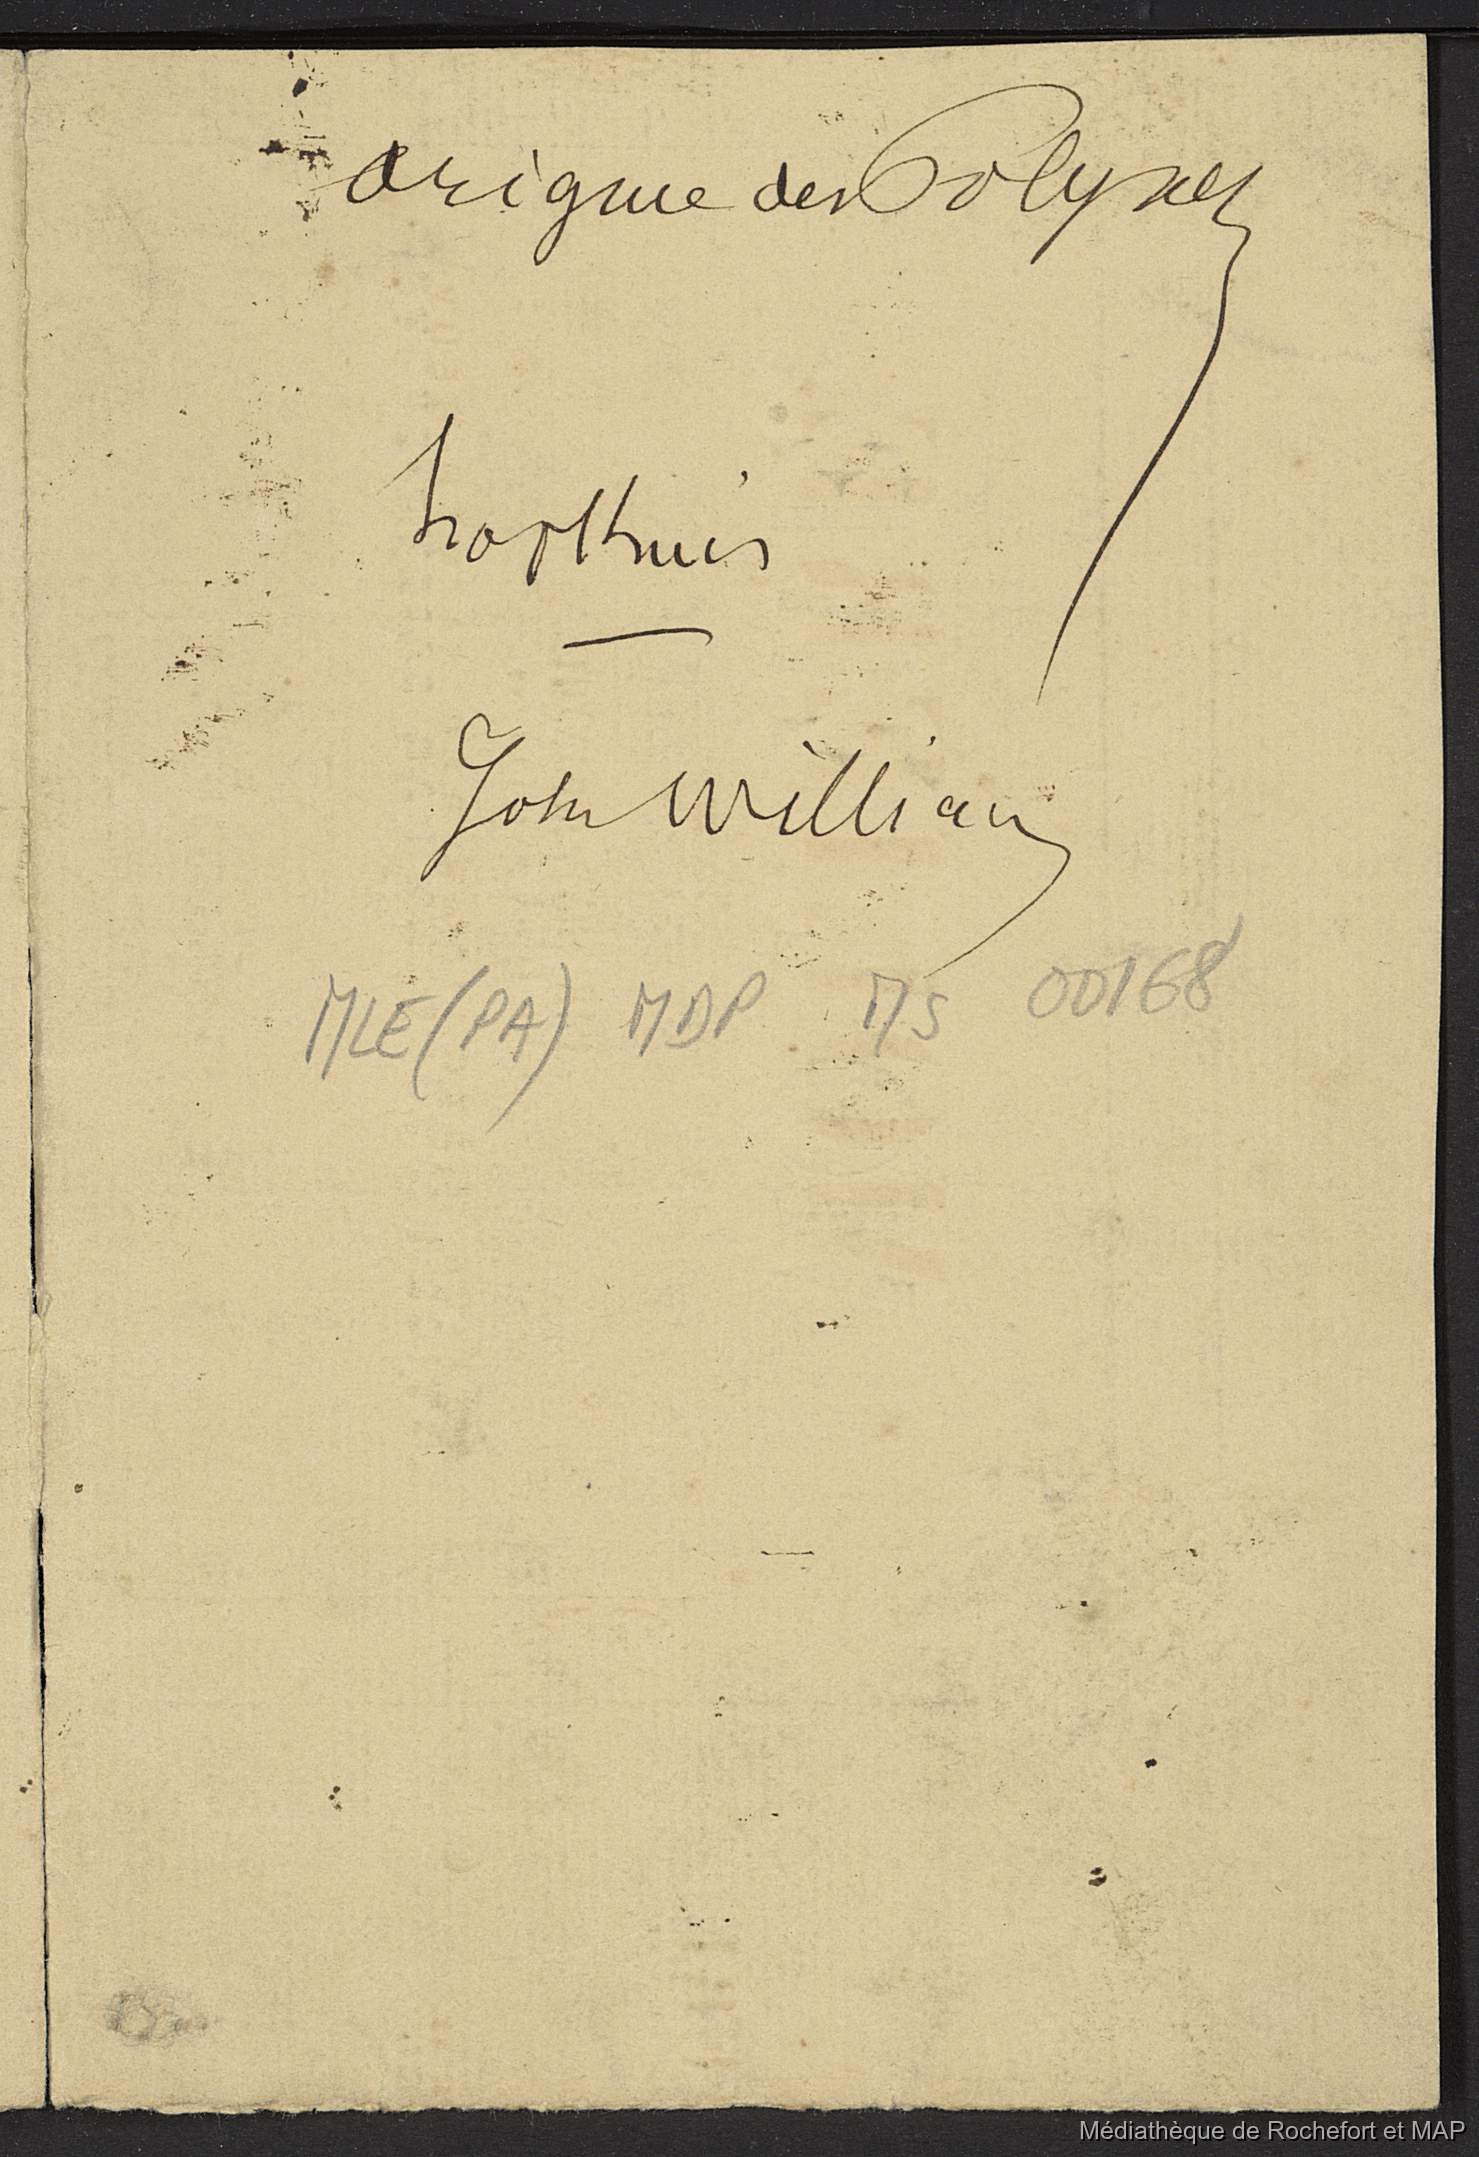 Origine des Polynes
John William
MLE (PA) MDP MS 00168
Médiathèque de Rochefort et MAP